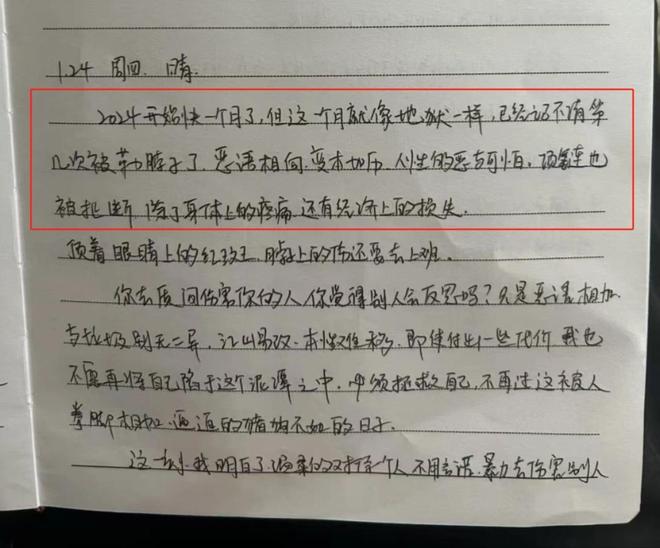 1.24 周四. 晴.
2024开始快一个月了,但这一个月就像地狱一样,已经记不清第
几次被勒脖子了.恶语相向.变本加厉.人性的恶与可怕.项链也
被扯断 除了身体上的疼痛.还有经济上的损失.
顶着眼睛上的红斑.脖子上的伤还要去上班.
你去质问伤害你的人你觉得别人会反思吗?只是恶语相加
与垃圾别无二异,江山易改.本性难移.即使付出一些代价 我也
不愿再将自己陷于这个泥潭之中.必须拯救自己,不再过这被人
拳脚相加.逼迫的猪狗不如的日子.
这一刻.我明白了.温柔的对待个人 不用言语.暴力去伤害别人